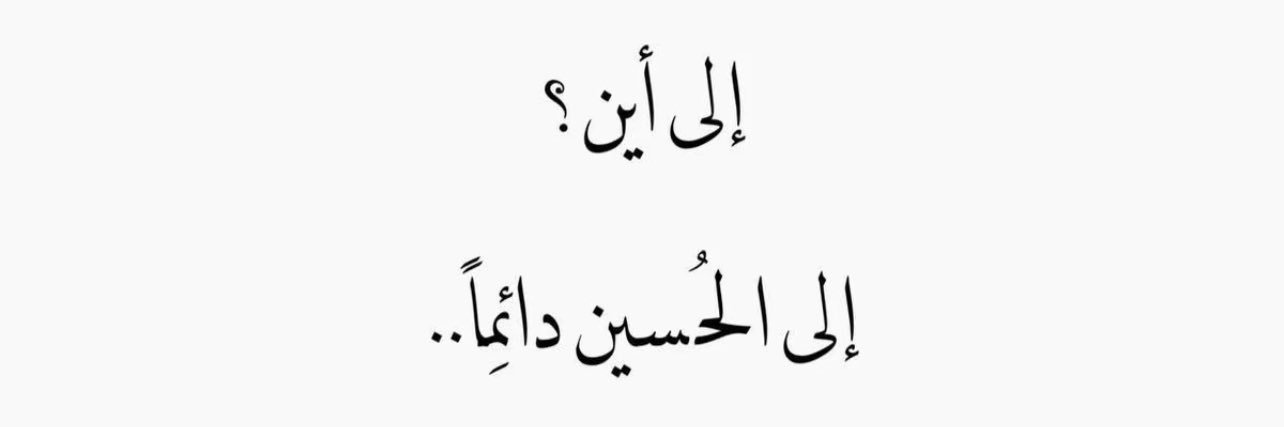 إلى أين ؟
إلى الحُسين دائِماً..